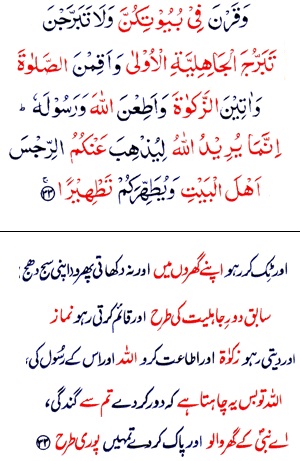 وَقَرْنَ فِيْ بُيُوْتِكُنَّ وَلَا تَبَرَّجْنَ
تَبَرُّجَ الْجَاهِلِيَّةِ الْاُوْلٰى وَاَقِمْنَ الصَّلٰوةَ
وَاٰتِيْنَ الزَّكٰوةَ وَاَطِعْنَ اللّٰهَ وَرَسُوْلَهٗ ؕ
اِنَّمَا يُرِيْدُ اللّٰهُ لِيُذْهِبَ عَنْكُمُ الرِّجْسَ
اَهْلَ الْبَيْتِ وَيُطَهِّرَكُمْ تَطْهِيْرًا ۚ ﴿۳۳﴾
اور ٹِک کر رہو اپنے گھروں میں اور نہ دکھاتی پھرو اپنی سج دھج
سابق دورِ جاہلیت کی طرح اور قائم کرتی رہو نماز
اور دیتی رہو زکوٰۃ اور اطاعت کرو اللہ اور اس کے رسُول کی،
اللہ تو بس یہ چاہتا ہے کہ دور کر دے تم سے گندگی،
اے نبیؐ کے گھر والو اور پاک کر دے تمہیں پوری طرح ﴿۳۳﴾